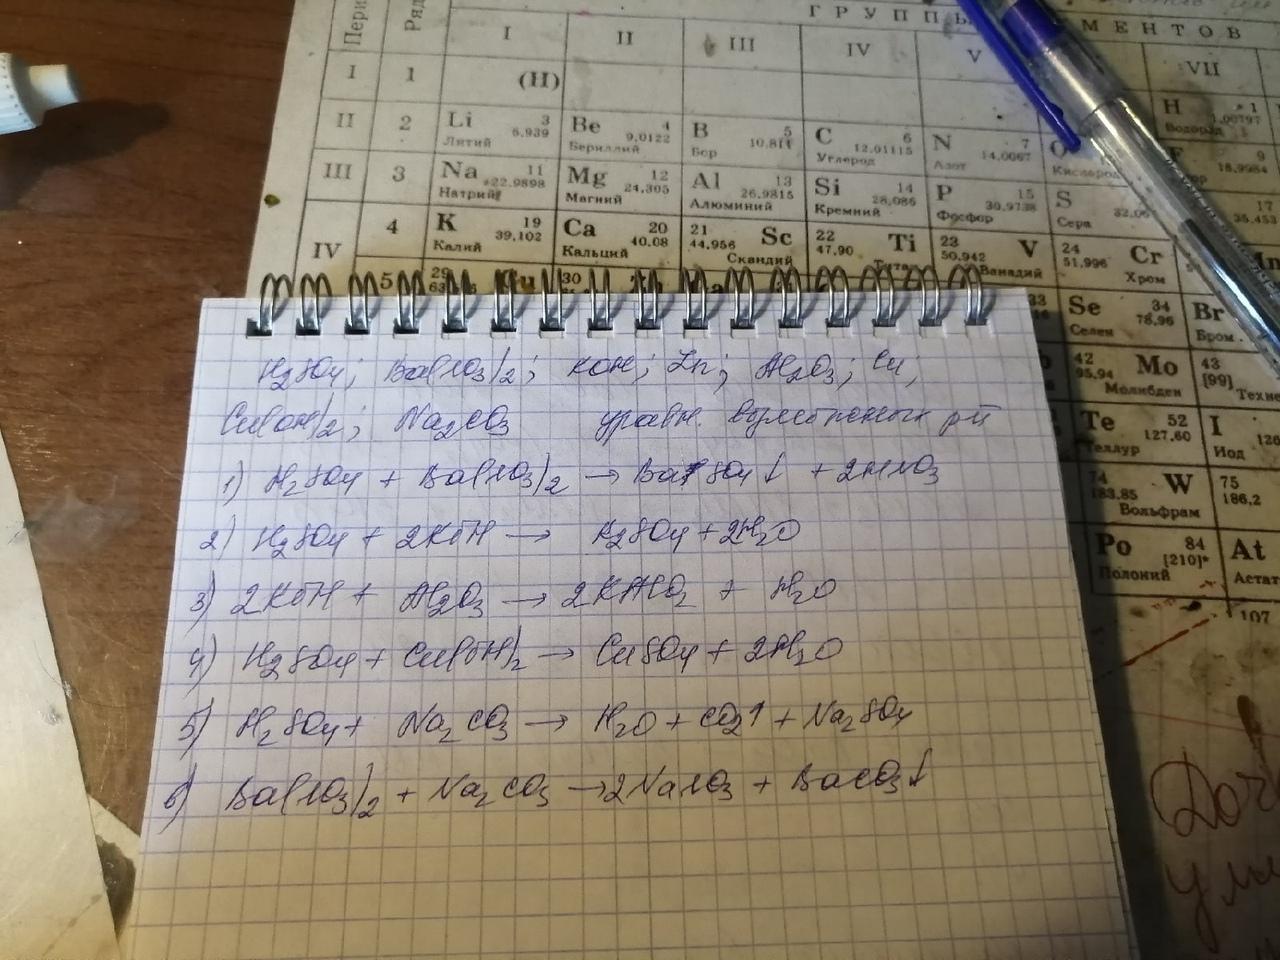 ГРУПП ЭЛЕМЕНТОВ
I II III IV V VII
I 1 (H) H 1 1,00797 Водород
II 2 Li 3 6,939 Литий Be 4 9,0122 Бериллий B 5 10,811 Бор C 6 12,01115 Углерод N 7 14,0067 Азот Кислород 9 18,9984
III 3 Na 11 22,9898 Натрий Mg 12 24,305 Магний Al 13 26,9815 Алюминий Si 14 28,086 Кремний P 15 30,9738 Фосфор S 32,06 Сера 17 35,453
IV 4 K 19 39,102 Калий Ca 20 40,08 Кальций 21 44,956 Sc Скандий 22 47,90 Ti 23 50,942 V Ванадий 24 51,996 Cr Хром
5 29 30 33 Se 34 78,96 Селен Br Бром
42 95,94 Mo Молибден 43 [99]
Te 52 127,60 Теллур I Иод
74 183,85 W Вольфрам 75 186,2
Po 84 [210]* Полоний At
107
H2SO4; Ba(NO3)2; KOH; Zn; Al2O3; Cu;
Cu(OH)2; Na2CO3 уравн. возможных р-й
1) H2SO4 + Ba(NO3)2 → BaSO4↓ + 2HNO3
2) H2SO4 + 2KOH → K2SO4 + 2H2O
3) 2KOH + Al2O3 → 2KAlO2 + H2O
4) H2SO4 + Cu(OH)2 → CuSO4 + 2H2O
5) H2SO4 + Na2CO3 → H2O + CO2↑ + Na2SO4
6) Ba(NO3)2 + Na2CO3 → 2NaNO3 + BaCO3↓